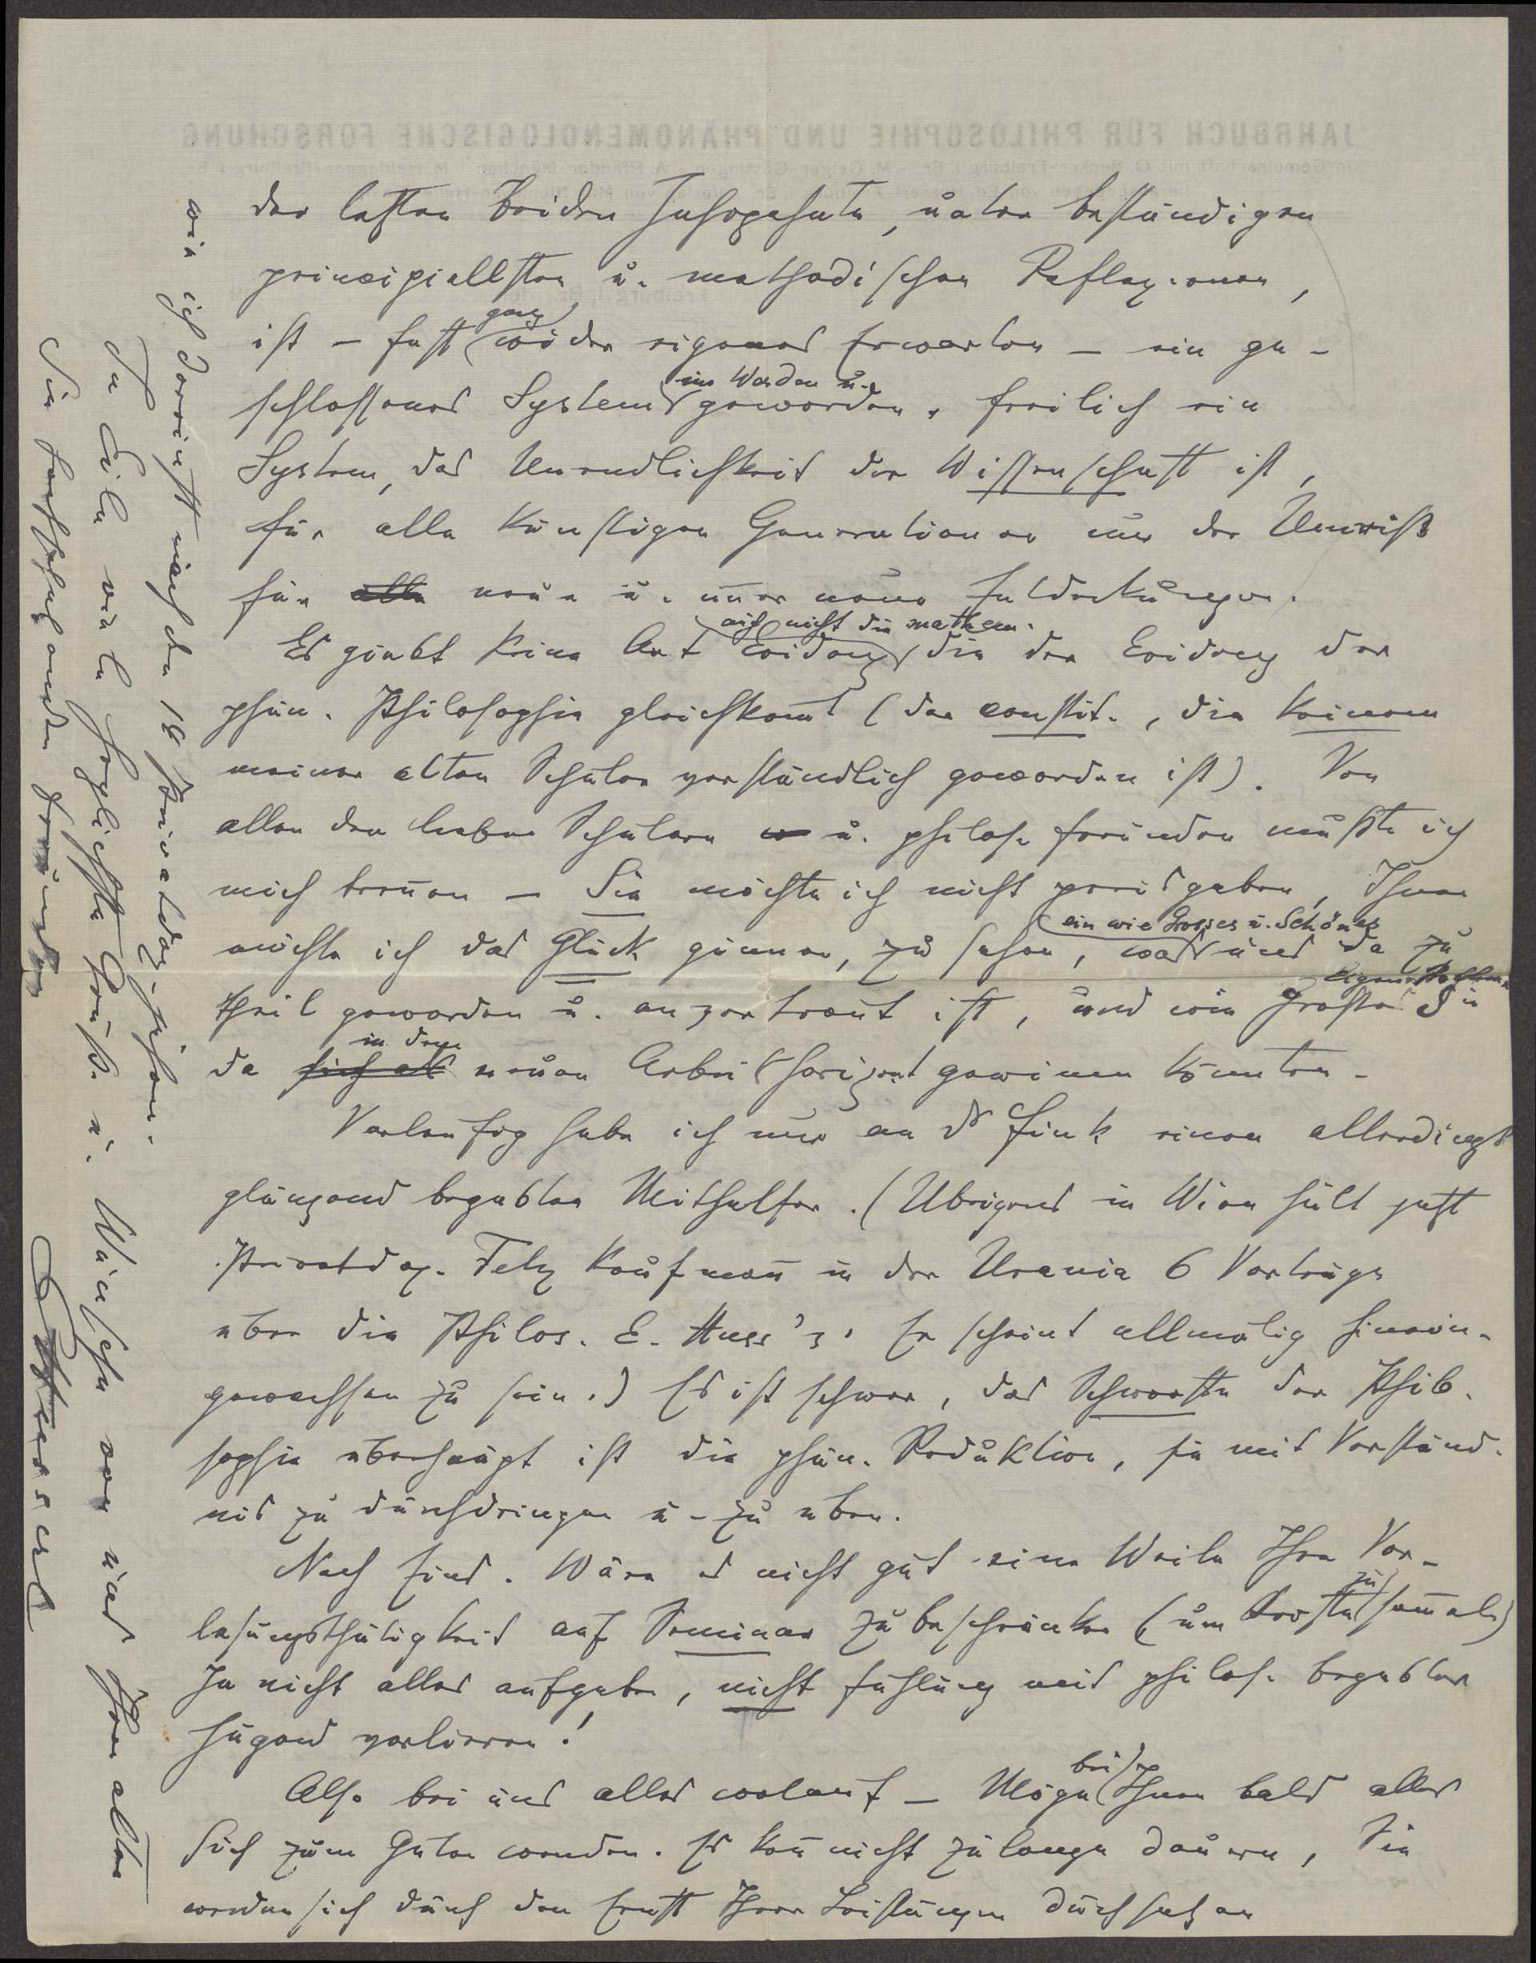 der letzten beiden Jahrzehnte, unter beständigen
principiellsten u. methodischen Reflexionen,
ist – fast ganz wider eigenes Erwarten – ein ge-
schlossenes System im Werden u. geworden, freilich ein
System, das Unendlichkeit der Wissenschaft ist,
für alle künftigen Generationen nur der Umriß
für alle neue u. im̅er neue Entdeckungen.
Es giebt keine Art Evidenz, auch nicht die mathem. die der Evidenz der
phän. Philosophie gleichkom̅t (der constit., die keinem
meiner alten Schüler verständlich geworden ist). Von
allen den lieben Schülern u. philos. Freunden mußte ich
mich trennen – Sie möchte ich nicht preisgeben, Ihnen
möchte ich das Glück gönnen, zu sehen, was ein wie Grosses u. Schönes uns da zu
Theil geworden u. anvertraut ist, und wie Großes Sie
da in dem neuen Arbeitshorizont gewinnen könnten.
Vorläufig habe ich nur an Dr Fink einen allerdings
glänzend begabten Mithelfer. (Übrigens in Wien hält jetzt
Privatdoz. Felix Kaufman̅ in der Urania 6 Vorträge
über die Philos. E. Huss's. Er scheint allmälig hinein-
gewachsen zu sein.) Es ist schwer, das Schwerste der Philo-
sophie überhaupt ist die phän. Reduktion, sie mit Verständ-
nis zu durchdringen u. zu üben.
Noch Eins. Wäre es nicht gut eine Weile Ihre Vor-
lesungsthätigkeit auf Seminar zu beschränken (um Kräfte zu sam̅eln)
Ja nicht alles aufgeben, nicht Fühlung mit philos. begabter
Jugend verlieren!
Also bei uns alles wolauf – Möge bei Ihnen bald alles
sich zum Guten wenden. Es kan̅ nicht zu lange dauern, Sie
werden sich durch den Ernst Ihrer Leistungen durchsetzen
wie ich dereinst nach den 14 Privatdoz.jahren.
In Eile viele herzlichste Grüße u. Wünsche von uns Ihr alter
Sie hochschätzender Freund
EHusserl